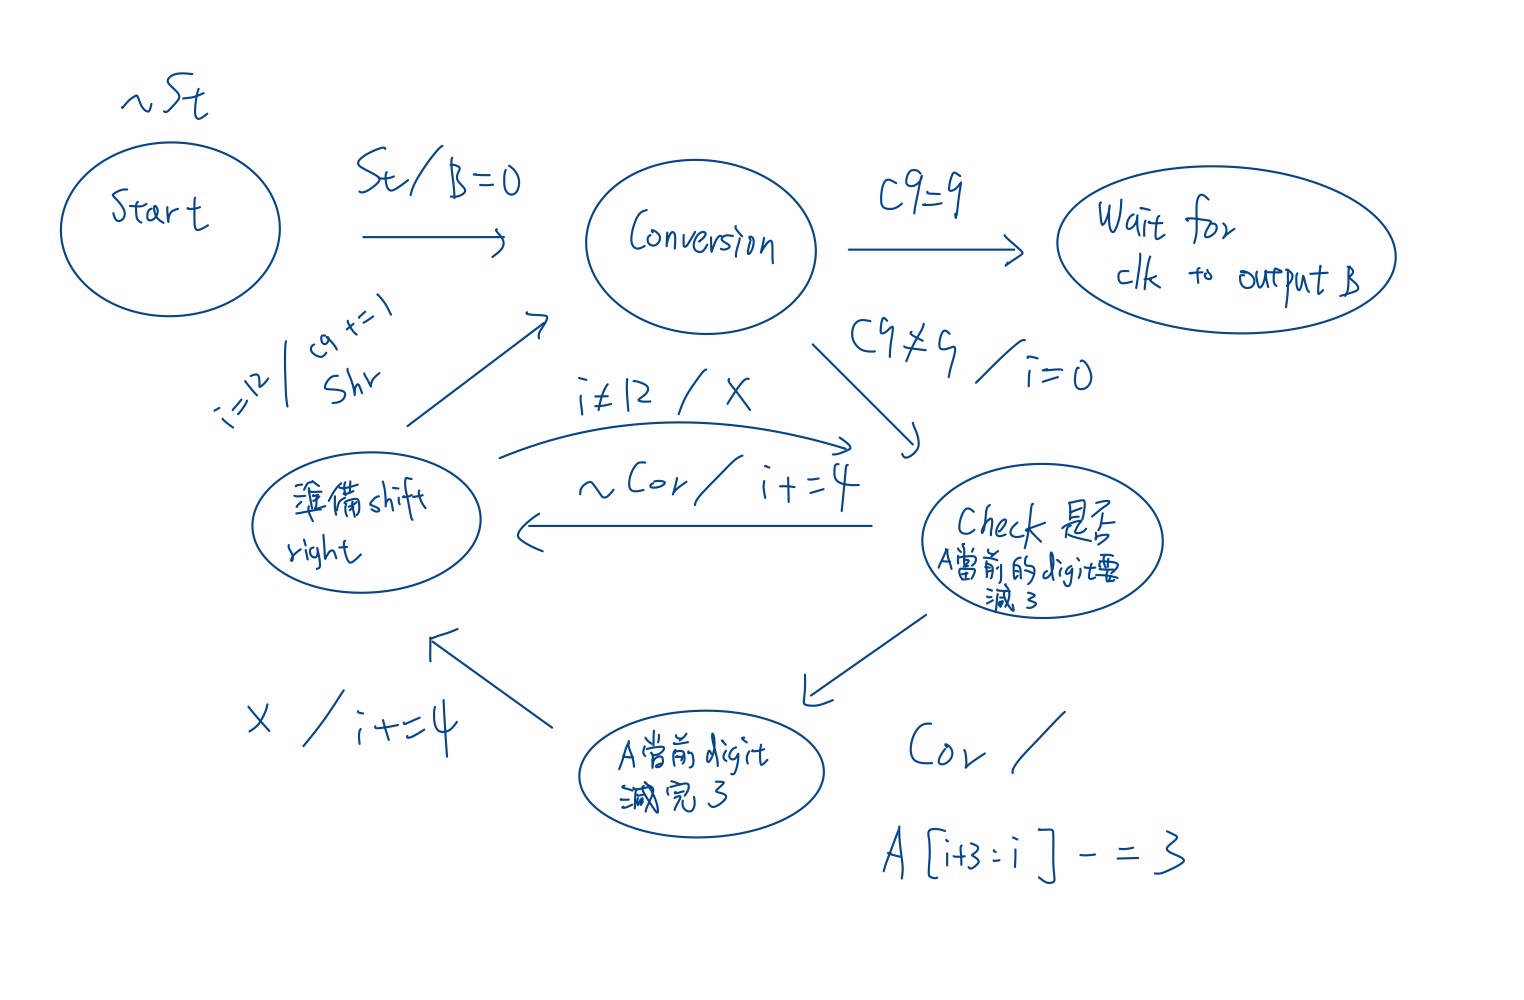 ~St
Start
St / B=0
Conversion
C9=9
Wait for
clk to output B
C9≠9 / i=0
i=12 / C9+=1
Shr
i≠12 / X
~Cor / i+=4
準備shift
right
Check 是否
A當前的digit要
減3
X / i+=4
A當前digit
減完3
Cor /
A[i+3:i] -= 3